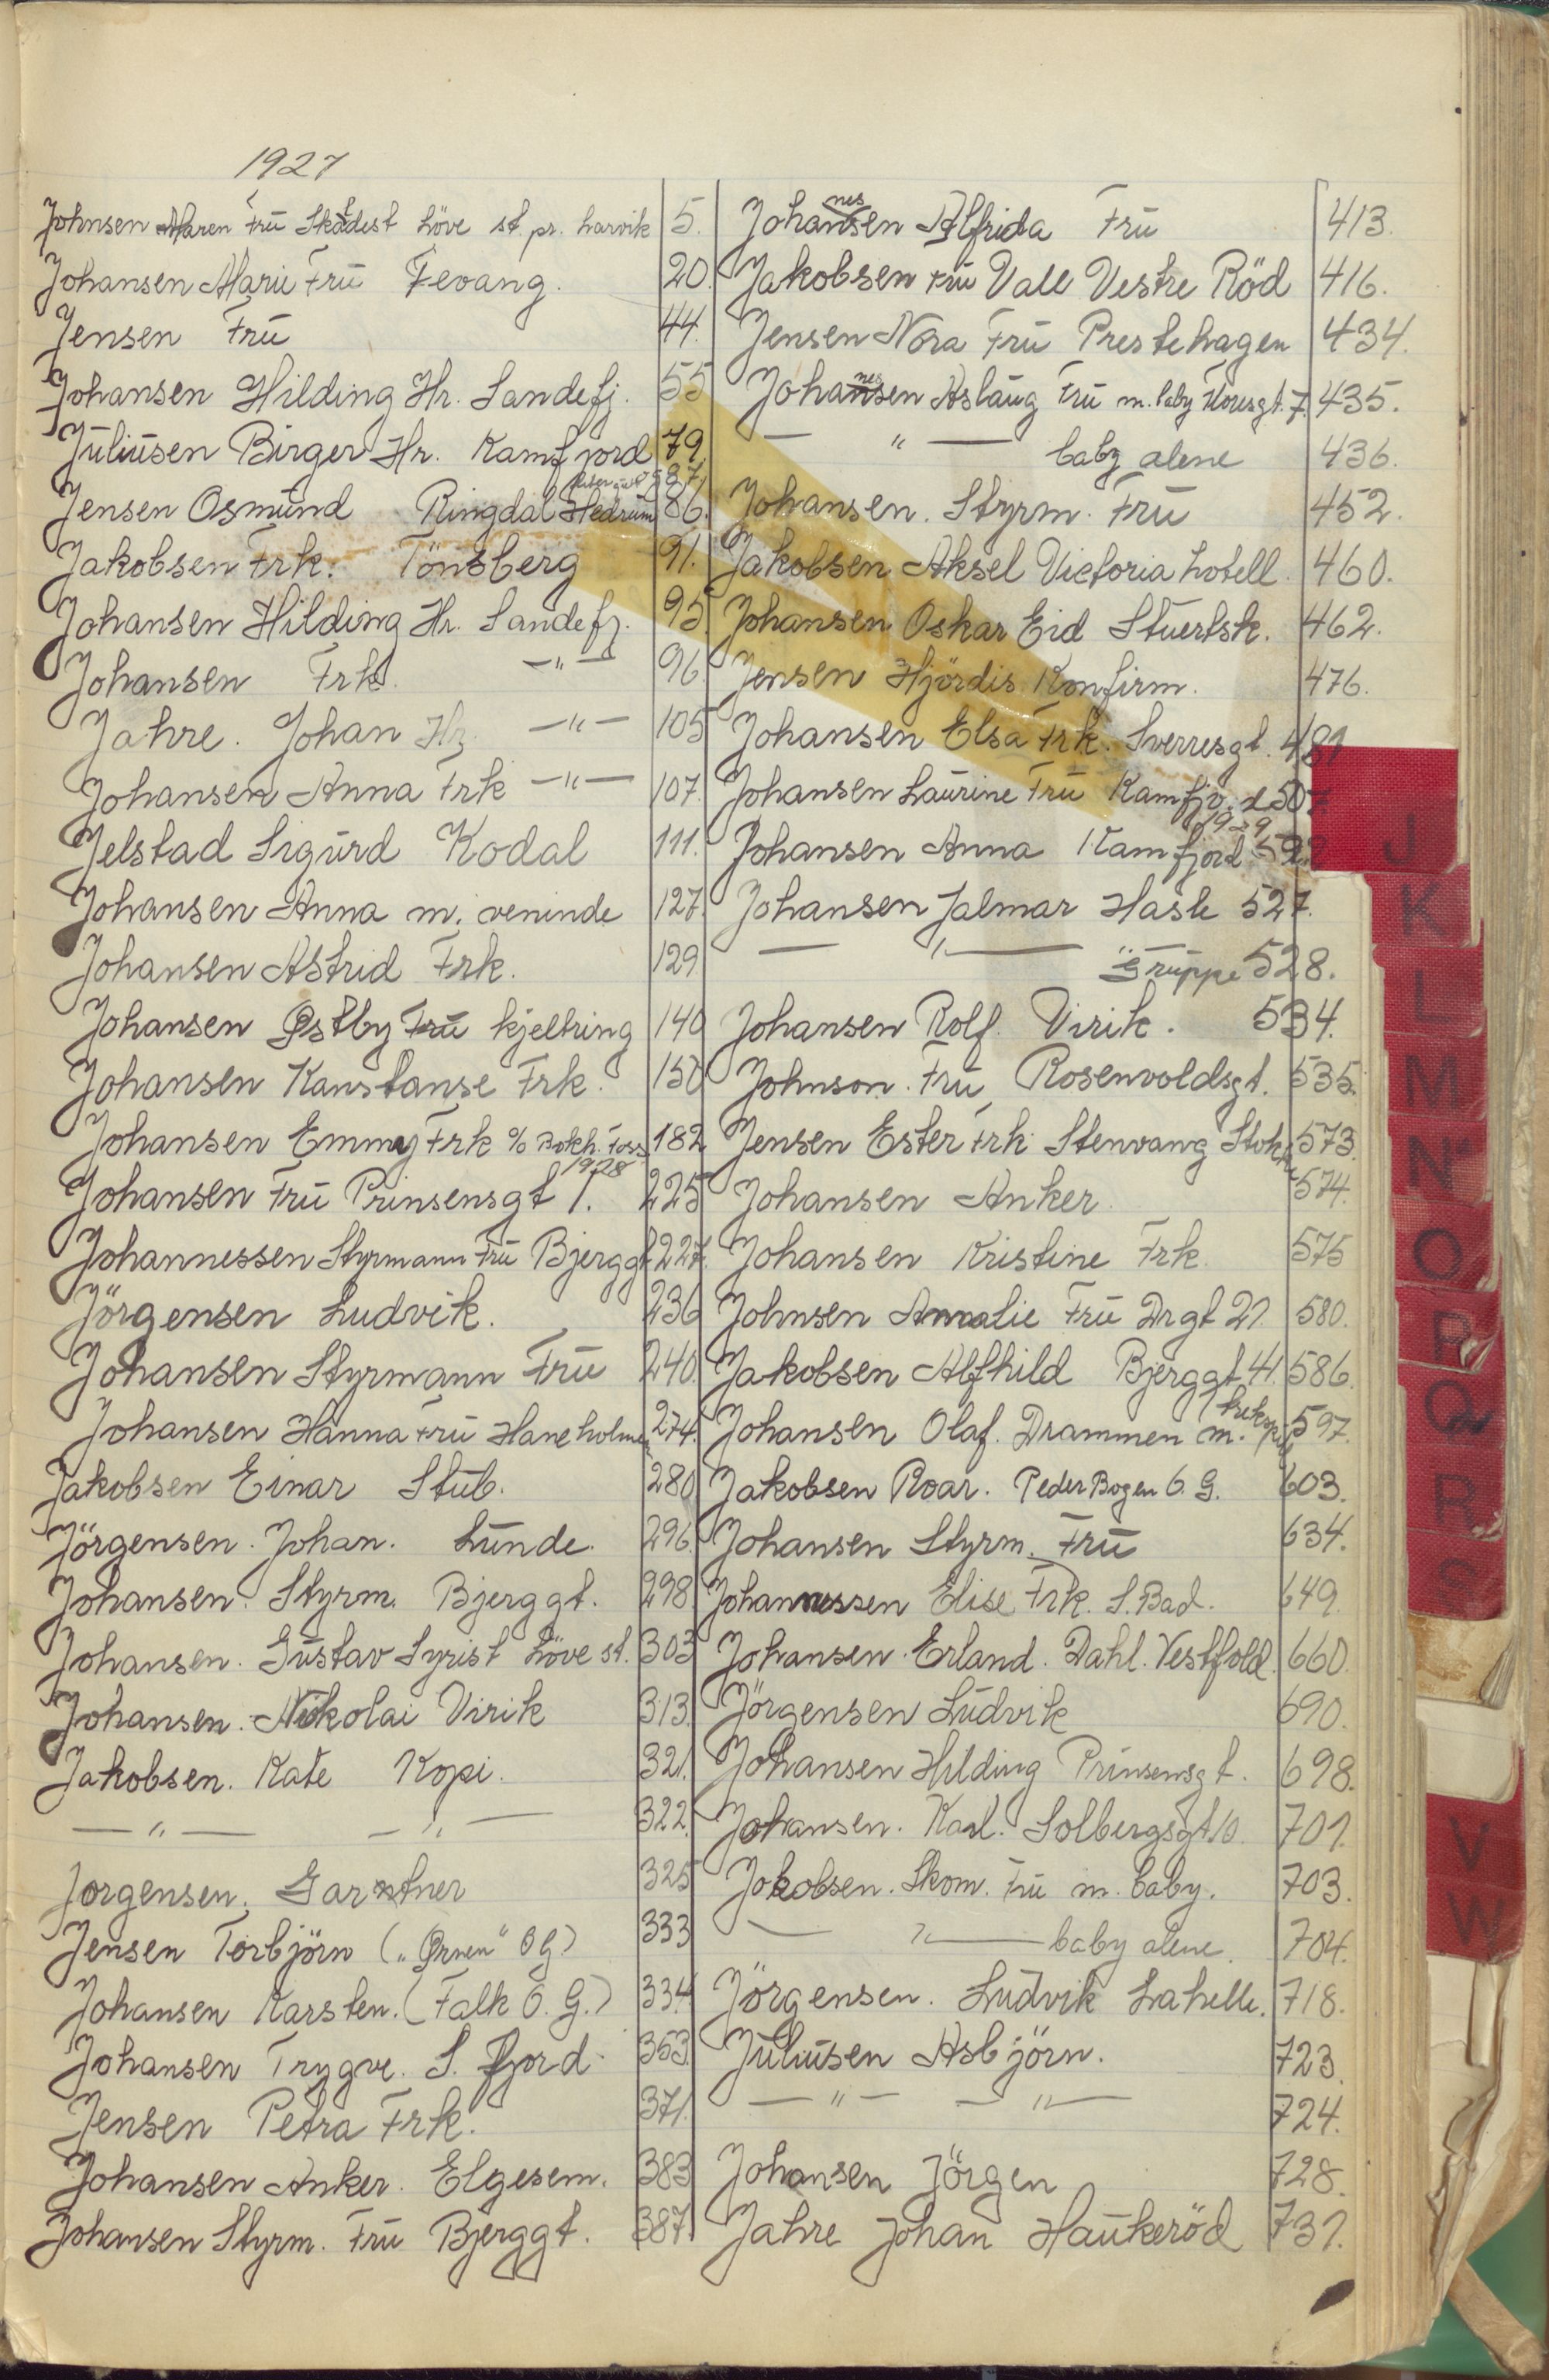 1927
Johnsen Maren Fru Löve st. pr. Larvik 5.
Johansen Marie Fru Fevang. 20.
Jensen Fru 44.
Johansen Hilding Hr. Sandefj. 55
Juliusen Birger Hr. Kamfjord 79.
587
Jensen Osmund Ringdal Hedrum 86.
Jakobsen Frk. Tönsberg 91.
Johansen Hilding Hr. Sandefj. 95.
Johansen Frk. —"— 96.
Jahre. Johan Hr. —"— 105
Johansen Anna Frk —"— 107.
Jelstad Sigurd Kodal 111.
Johansen Anna m. veninde 127.
Johansen Astrid Frk. 129
Johansen Østby Fru kjeltring 140
Johansen Kanstanse Frk. 150
Johansen Emmy Frk % Bokh. Foss 182
1928
Johansen Fru Prinsensgt 1. 225
Johannessen Styrmann Fru Bjerggt 227.
Jörgensen Ludvik. 236
Johansen Styrmann Fru 240.
Johansen Hanna Fru Haneholmen 274.
Jakobsen Einar Stub. 280
Jörgensen. Johan. Lunde. 296.
Johansen. Styrm. Bjerggt. 298.
Johansen. Gustav Syrist Löve st. 303
Johansen. Nikolai Virik 313.
Jakobsen. Kate Kopi. 321.
—"— —"— 322.
Jorgensen. Gartner 325
Jensen Torbjörn („Ørnen" O G) 333
Johansen Karsten. (Falk O. G.) 334
Johansen Trygve. S. fjord. 353.
Jensen Petra Frk. 371.
Johansen Anker. Elgesem. 383
Johansen Styrm. Fru Bjerggt. 387.
nes
Johansen Alfrida Fru 413.
Jakobsen Fru Vall Vestre Röd 416.
Jensen Nora Fru Prestehagen 434.
nes
Johansen Aslaug Fru m. baby 7. 435.
—"— baby alene 436.
Johansen. Styrm. Fru 452.
Jakobsen Aksel Victoria hotell. 460.
Johansen Oskar Eid Stuertsk. 462.
Jensen Hjördis Konfirm. 476.
Johansen Elsa Frk. Sverresgt. 481
Johansen Laurine Fru Kamfjord 507
1929
Johansen Anna Kamfjord
Johansen Jalmar Hasle 527.
—"— Gruppe 528.
Johansen Rolf. Virik. 534.
Johnson. Fru Rosenvoldsgt. 535.
Jensen Ester Frk Stenvang Stokke 573.
Johansen Anker. 574.
Johansen Kristine Frk. 575
Johnsen Annalie Fru Drgt 21. 580.
Jakobsen Alfhild Bjerggt 41. 586.
Johansen Olaf. Drammen m. 597.
Jakobsen Roar. Peder Bogen O. G. 603.
Johansen Styrm. Fru 634.
Johannessen Elise Frk. S. Bad. 649.
Johansen. Erland. Dahl. Vestfold. 660.
Jörgensen Ludvik 690.
Johansen Hilding Prinsensgt. 698.
Johansen. Karl. Solbergsgt 10. 701.
Jakobsen. Skom. Fru m. baby. 703.
—"— baby alene. 704.
Jörgensen. Ludvik Lahelle. 718.
Juliusen Asbjörn. 723.
—"— —"— 724.
Johansen Jörgen 728.
Jahre Johan Haukeröd 731.
J
K
L
M
N
O
P
Q
R
S
V
W